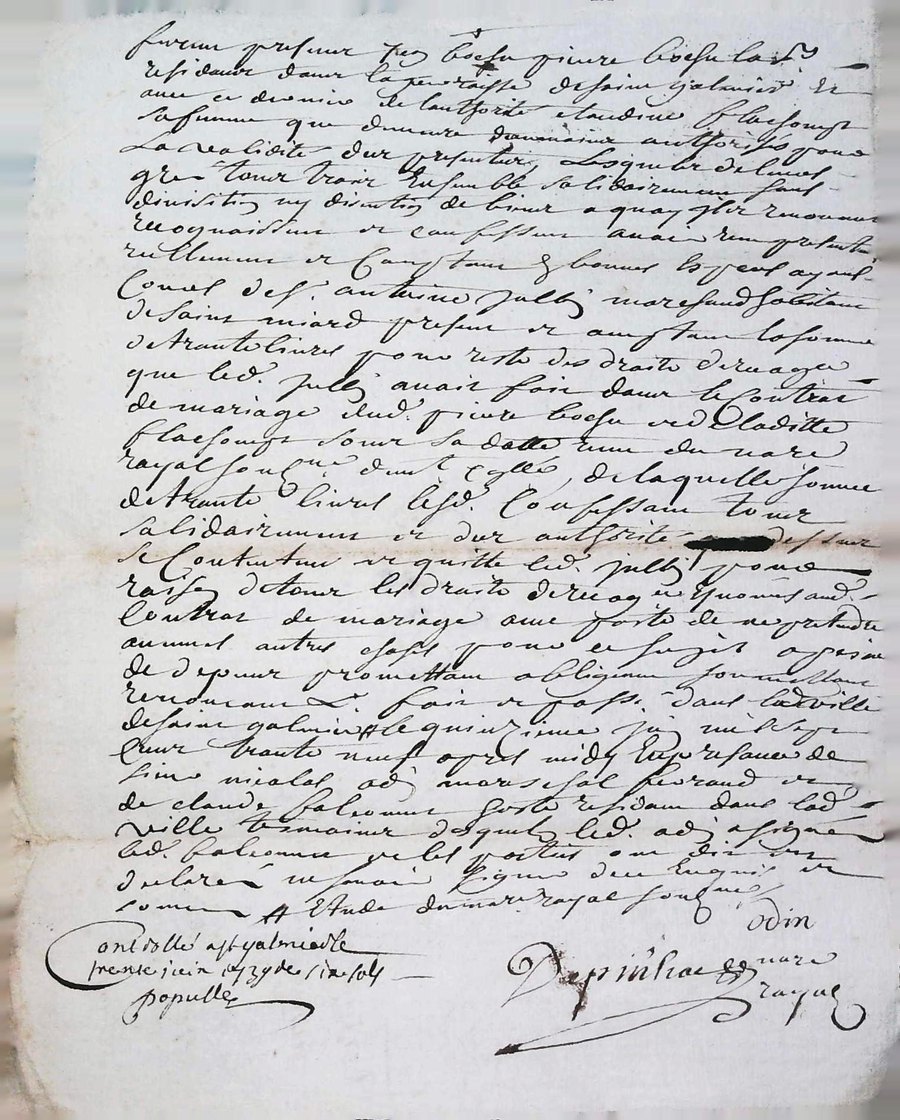 furent presents pierre bochu
residants dans la parroisse de saint galmier et
avec ce dernier de lauthorité claudine flachongt
sa femme que demeure authorisés pour
La validité des presentes Lesquels de leurs
grés tous trois Ensemble solidairement sans
division ny discution de biens a quoy ils renoncent
recognaissent et confessent avoir
reellement et Comptant bonnes Especes ayant
Cours de sr. antoine jullij marchand habitant
de saint miard present et acceptant la somme
de trante livres pour reste des droits
que led. jullij avait fait dans le Contrat
de mariage dud. pierre bochu et de laditte
flachongt sous sa datte du nore
royal soussigné de laquelle somme
de trante livres lesd. Confessant tous
solidairement et de authorité dessus
se Contenter et quitte led. jullij pour
raison de tous les droits aud.
Contrat de mariage avec pacte de ne pretendre
autres choses pour ce sujet a peine
de depens promettant obligeant soumettant
renonceant &a fait et passé dans lad ville
de saint galmier # le quinzieme juin mil sept
Cents trante neuf apres midy En presance de
sieur nicolas odin mareschal ferrand et
de claude falconnet hoste residants dans lad.
ville tesmoins desquels led. odin a signé
led. falconnet et les parties ont dit et
declaré ne savoir signer de ce Enquis et
sommés # Etude du nore royal soussigné
odin
Depinhac nore
royal
Controllé a st galmier le
trente juin 1739 de six sols
populle